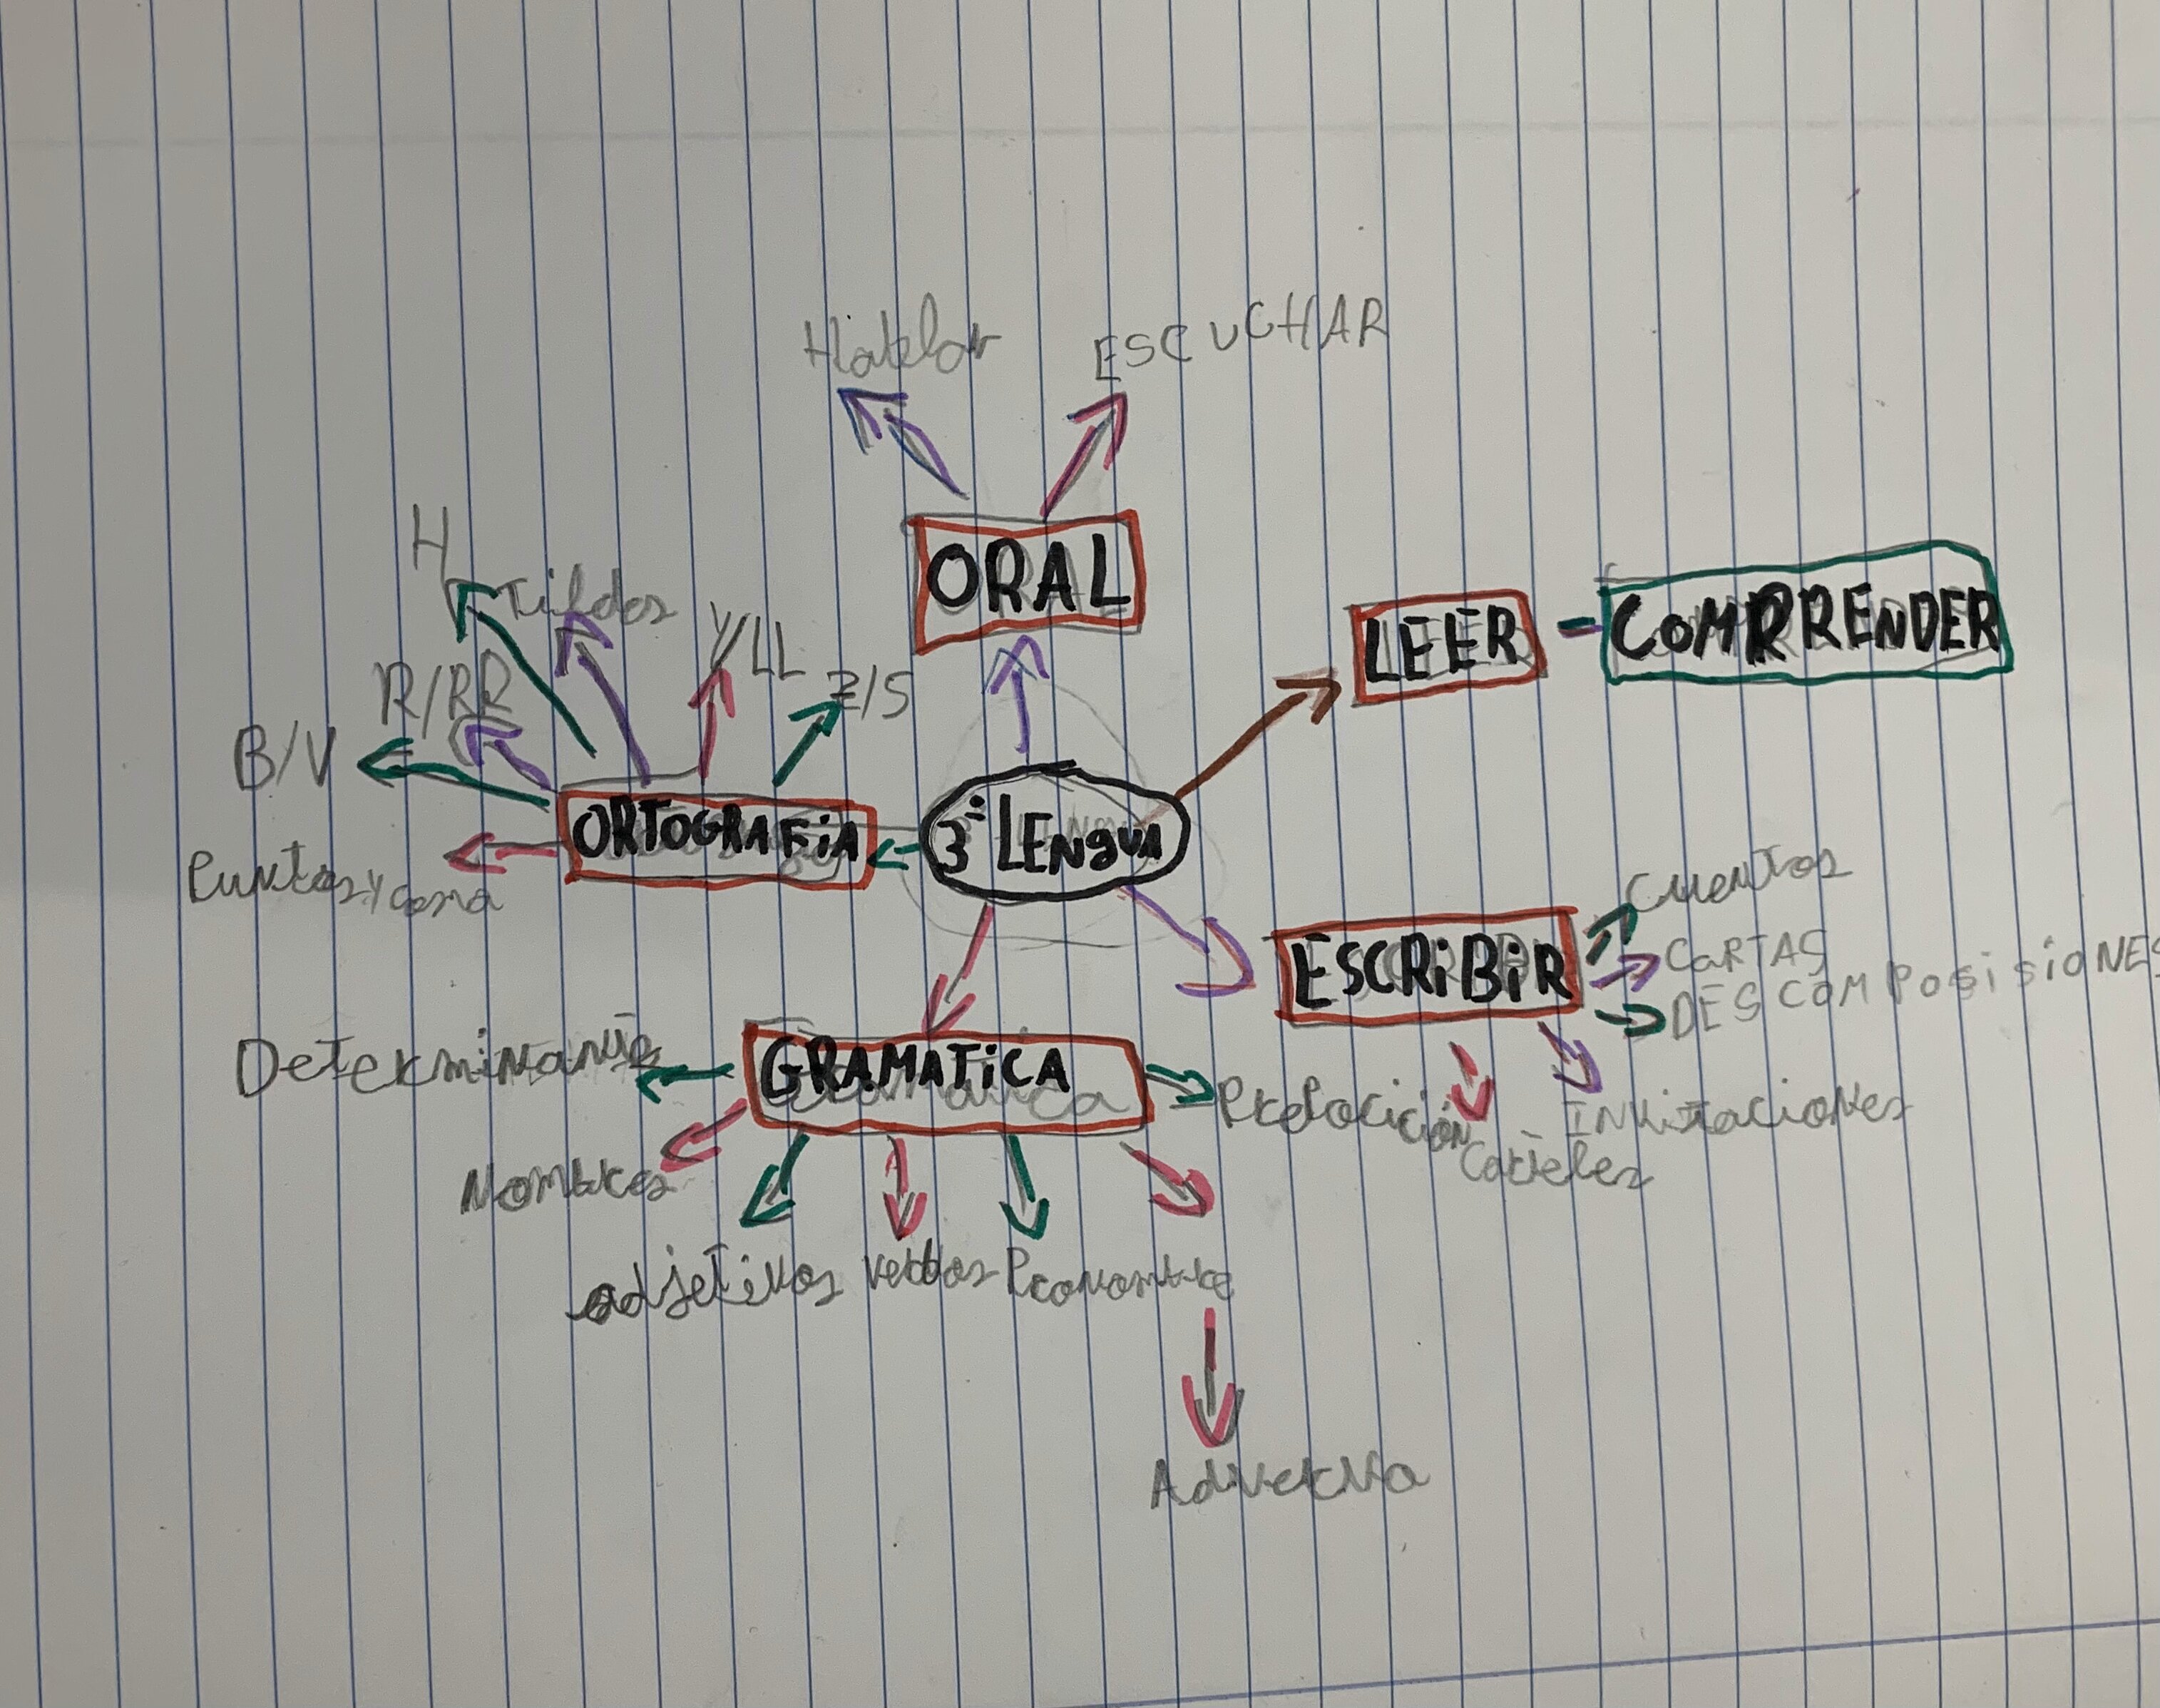 Hablar
ESCUCHAR
ORAL
H
Tildes
Y/LL
Z/S
R/RR
B/V
Puntos y coma
ORTOGRAFiA
3º LENgUA
LEER
COMRRENDER
ESCRiBiR
Cuentos
CARTAS
DESCOMPOSiSiONES
INvitaciones
Carteles
GRAMATiCA
Determinante
Nombres
adjetivos
verbos
Pronombre
Prepocición
Adverbio